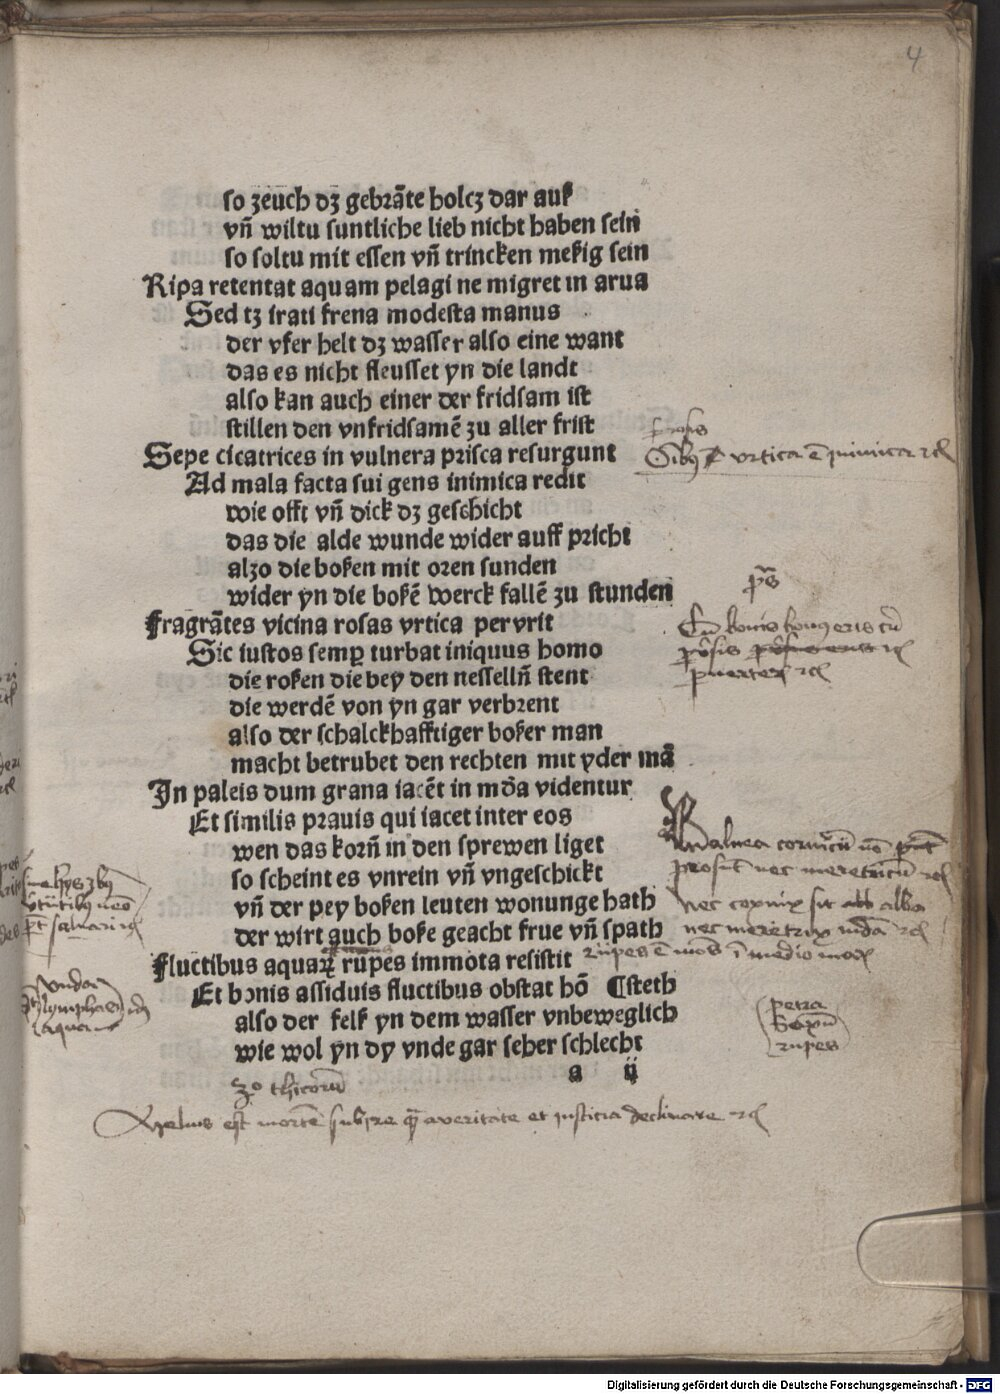 4
so zeuch dʒ gebrāte holcz dar auß
vn̄ wiltu suntliche lieb nicht haben sein
so soltu mit essen vn̄ trincken meßig sein
Ripa retentat aquam pelagi ne migret in arua
Sed tʒ irati frena modesta manus
der vfer helt dʒ wasser also eine want
das es nicht fleusset yn die landt
also kan auch einer der fridsam ist
stillen den vnfridsamē zu aller frist
Sepe cicatrices in vulnera prisca resurgunt
Ad mala facta sui gens inimica redit
wie offt vn̄ dick dʒ geschicht
das die alde wunde wider auff pricht
alzo die boßen mit oren sunden
wider yn die boßē werck fallē zu stunden
Fragrātes vicina rosas vrtica pervrit
Sic iustos semꝑ turbat iniquus homo
die roßen die bey den nesselln̄ stent
die werdē von yn gar verbrent
also der schalckhafftiger boßer man
macht betrubet den rechten mit yder mā
In paleis dum grana iacēt in mo̅a videntur
Et similis prauis qui iacet inter eos
wen das korn̄ in den sprewen liget
so scheint es vnrein vn̄ vngeschickt
vn̄ der pey boßen leuten wonunge hath
der wirt auch boße geacht frue vn̄ spath
Fluctibus aquaꝝ rupes immota resistit
rupes ē mōs ī medio
Et bonis assiduis fluctibus obstat hō ¶steth
also der felß yn dem wasser vnbeweglich
wie wol yn dy vnde gar seher schlecht
a ij
est mortē subire quā a veritate et iusticia declinare
vrtica ē inimica
nec meretricū
nec sit alba
nec meretrix
petra
rupes
aqua
Digitalisierung gefördert durch die Deutsche Forschungsgemeinschaft - DFG